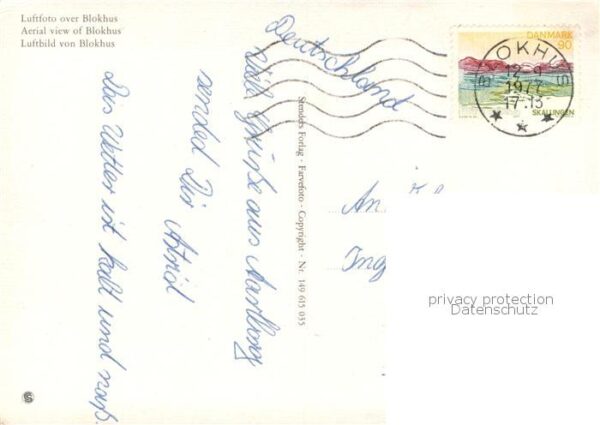 Luftfoto over Blokhus
Aerial view of Blokhus
Luftbild von Blokhus
DANMARK
90
BLOKHUS
12.-9.
1977
17-13
SKALLINGEN
Deutschland
Viele Grüße aus Aalborg
sendet Dir Astrid
Das Wetter ist kalt und naß.
Stenders Forlag - Farvefoto - Copyright - Nr. 149 615 035
An
Ing
privacy protection
Datenschutz
S